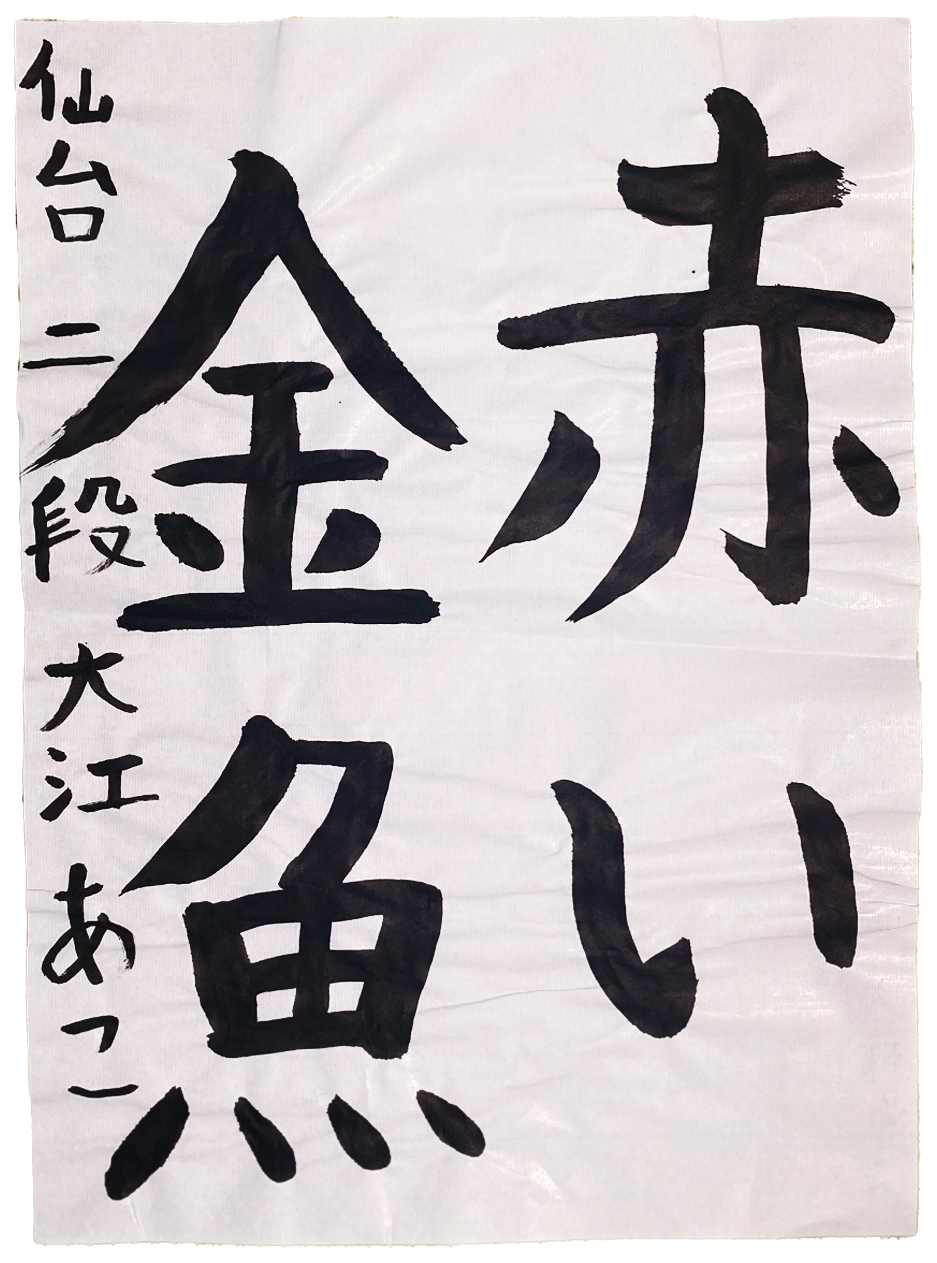 赤い
金魚
仙台 二段 大江 あこ